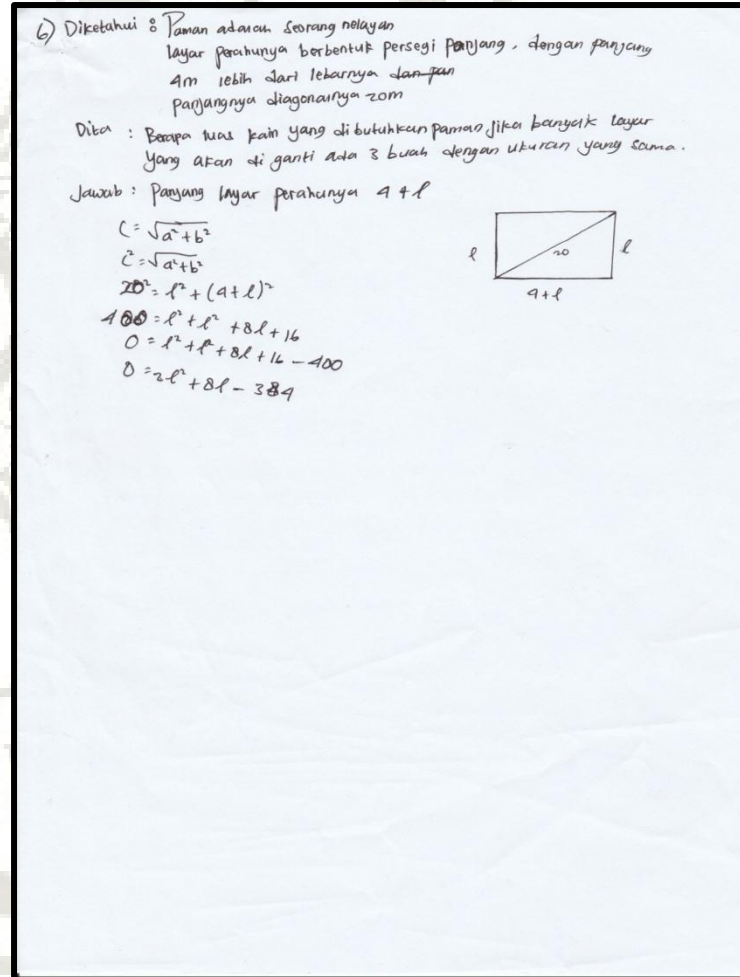 6) Diketahui : Paman adalah seorang nelayan
layar perahunya berbentuk persegi panjang, dengan panjang
4m lebih dari lebarnya dan pan
panjangnya diagonalnya 20m
Dita : Berapa luas kain yang dibutuhkan paman jika banyak layar
yang akan di ganti ada 3 buah dengan ukuran yang sama.
Jawab : Panjang layar perahunya 4 + l
C = √a² + b²
C² = √a² + b²
20² = l² + (4 + l)²
400 = l² + l² + 8l + 16
0 = l² + l² + 8l + 16 - 400
0 = 2l² + 8l - 384
l
20
l
4 + l